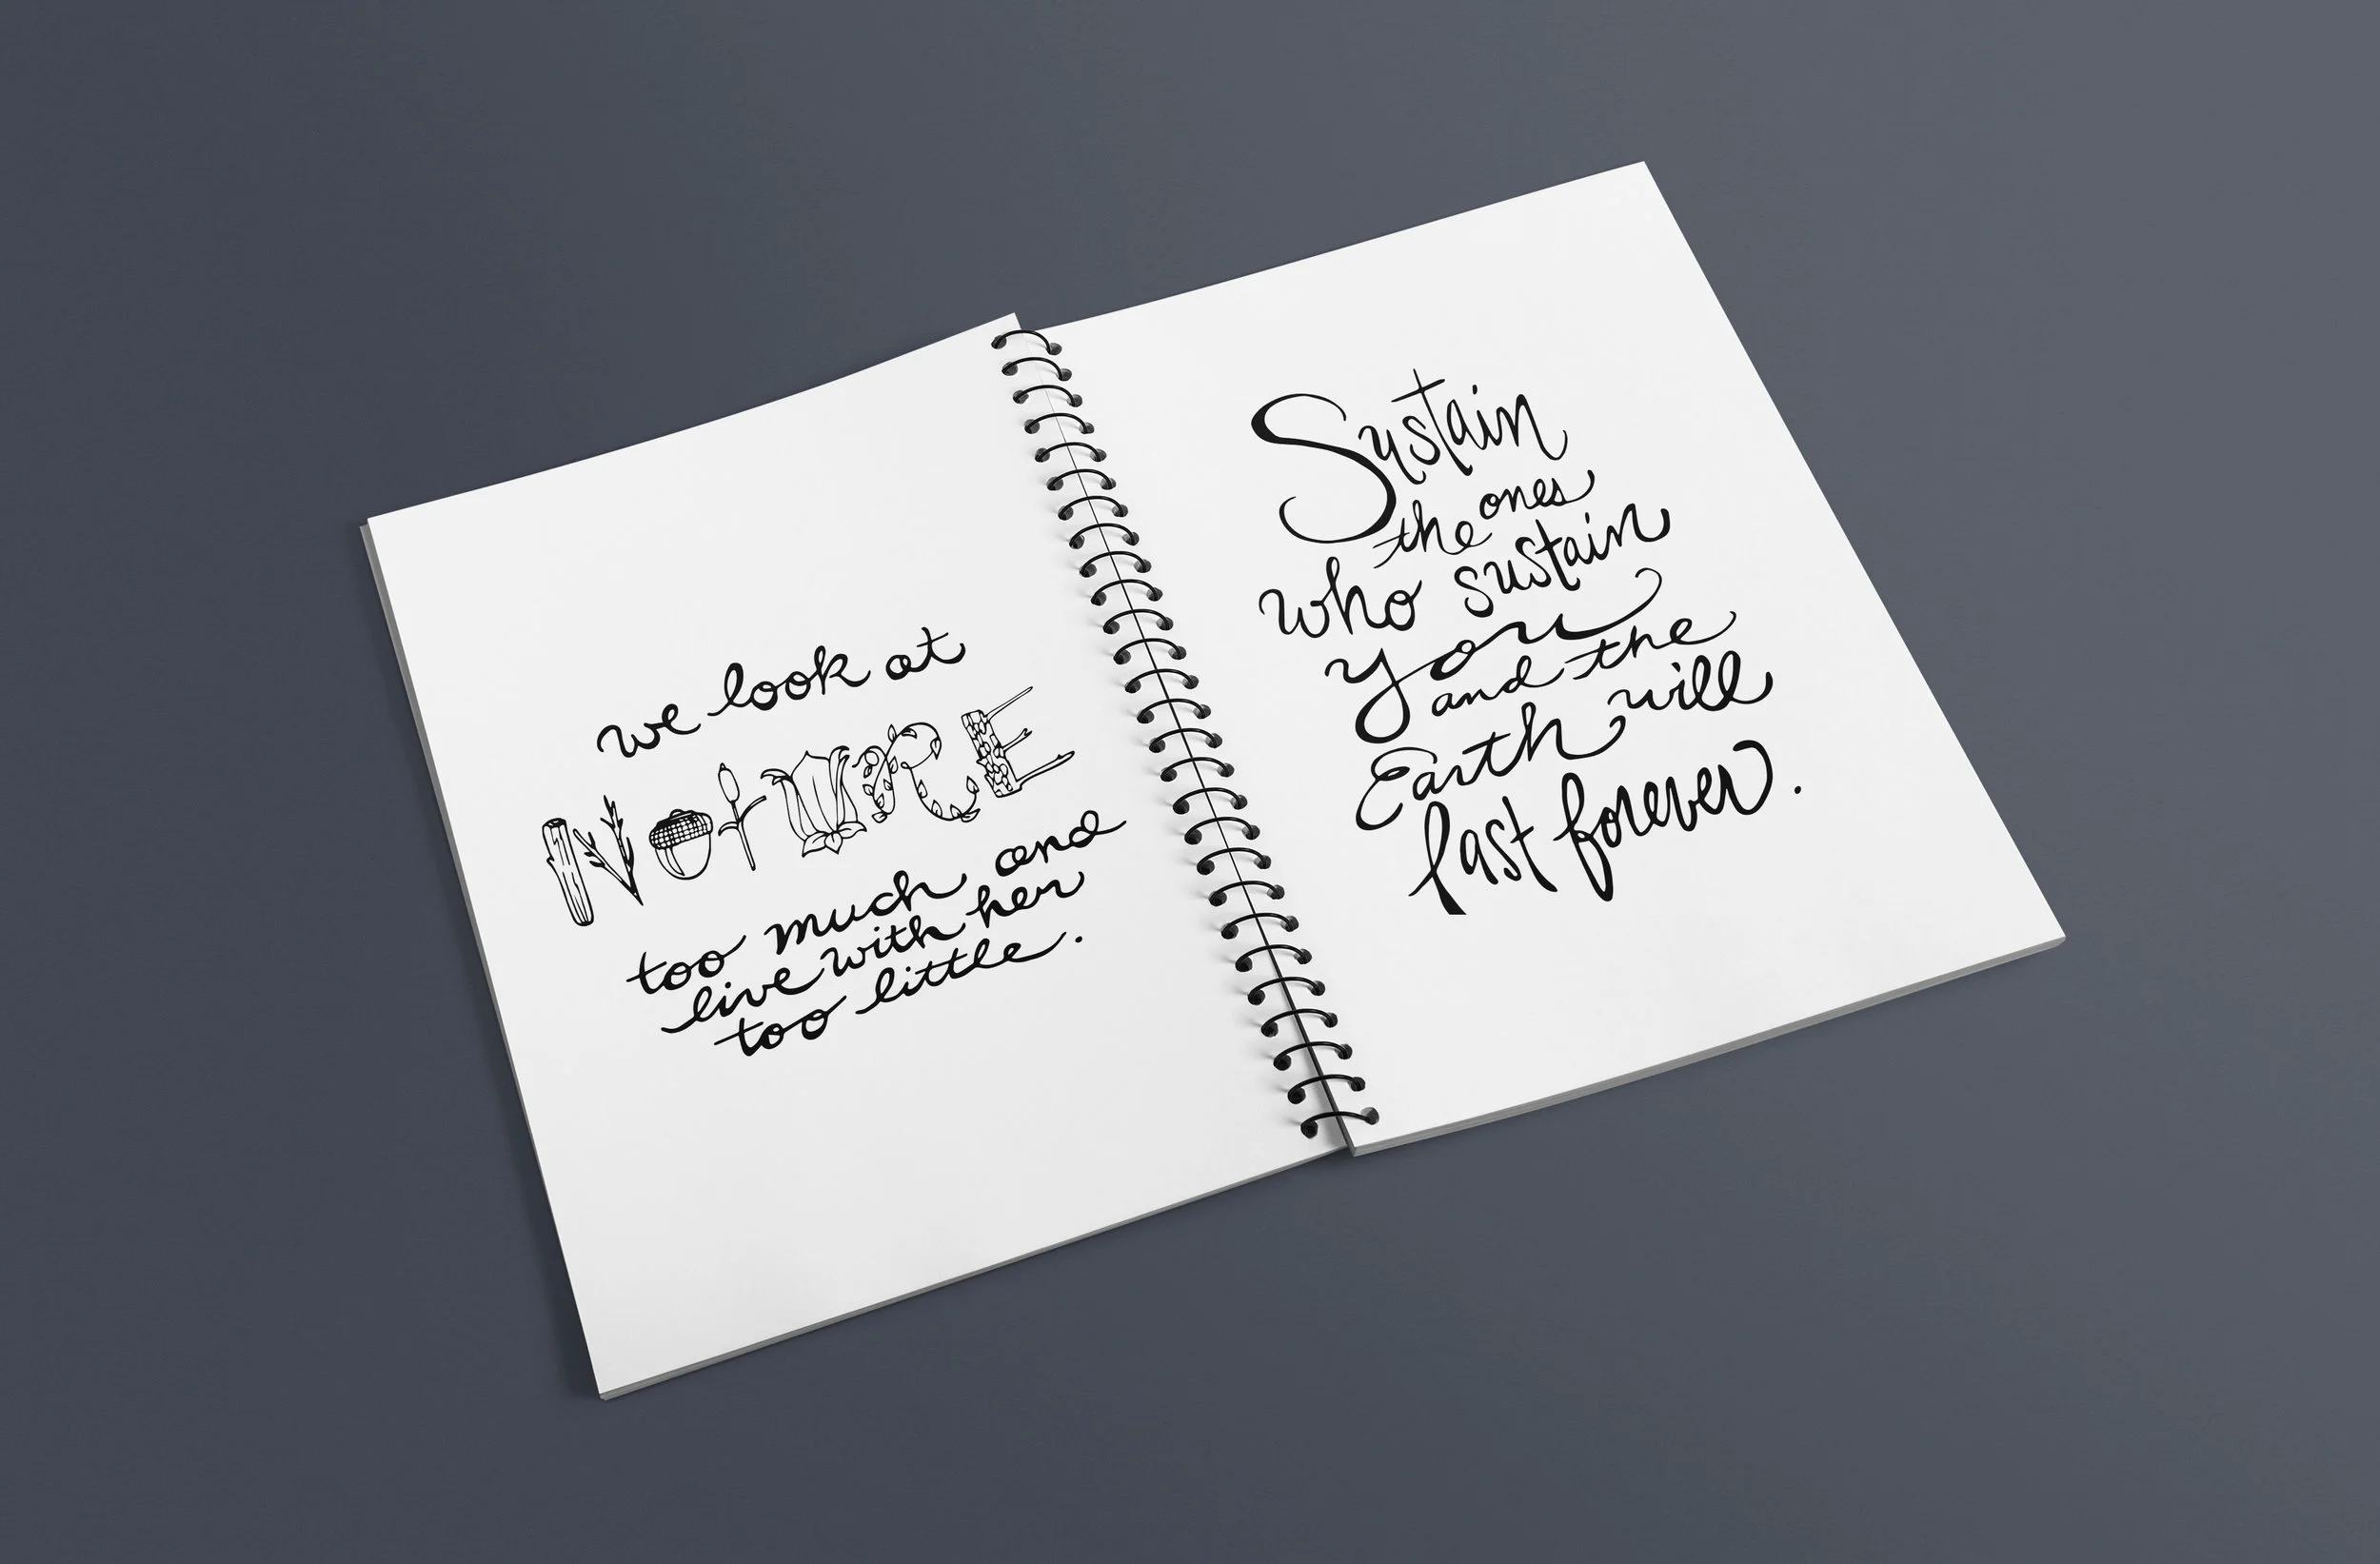 we look at
NatURE
too much and
live with her
too little.
Sustain
the ones
who sustain
you
and the
Earth will
last forever.